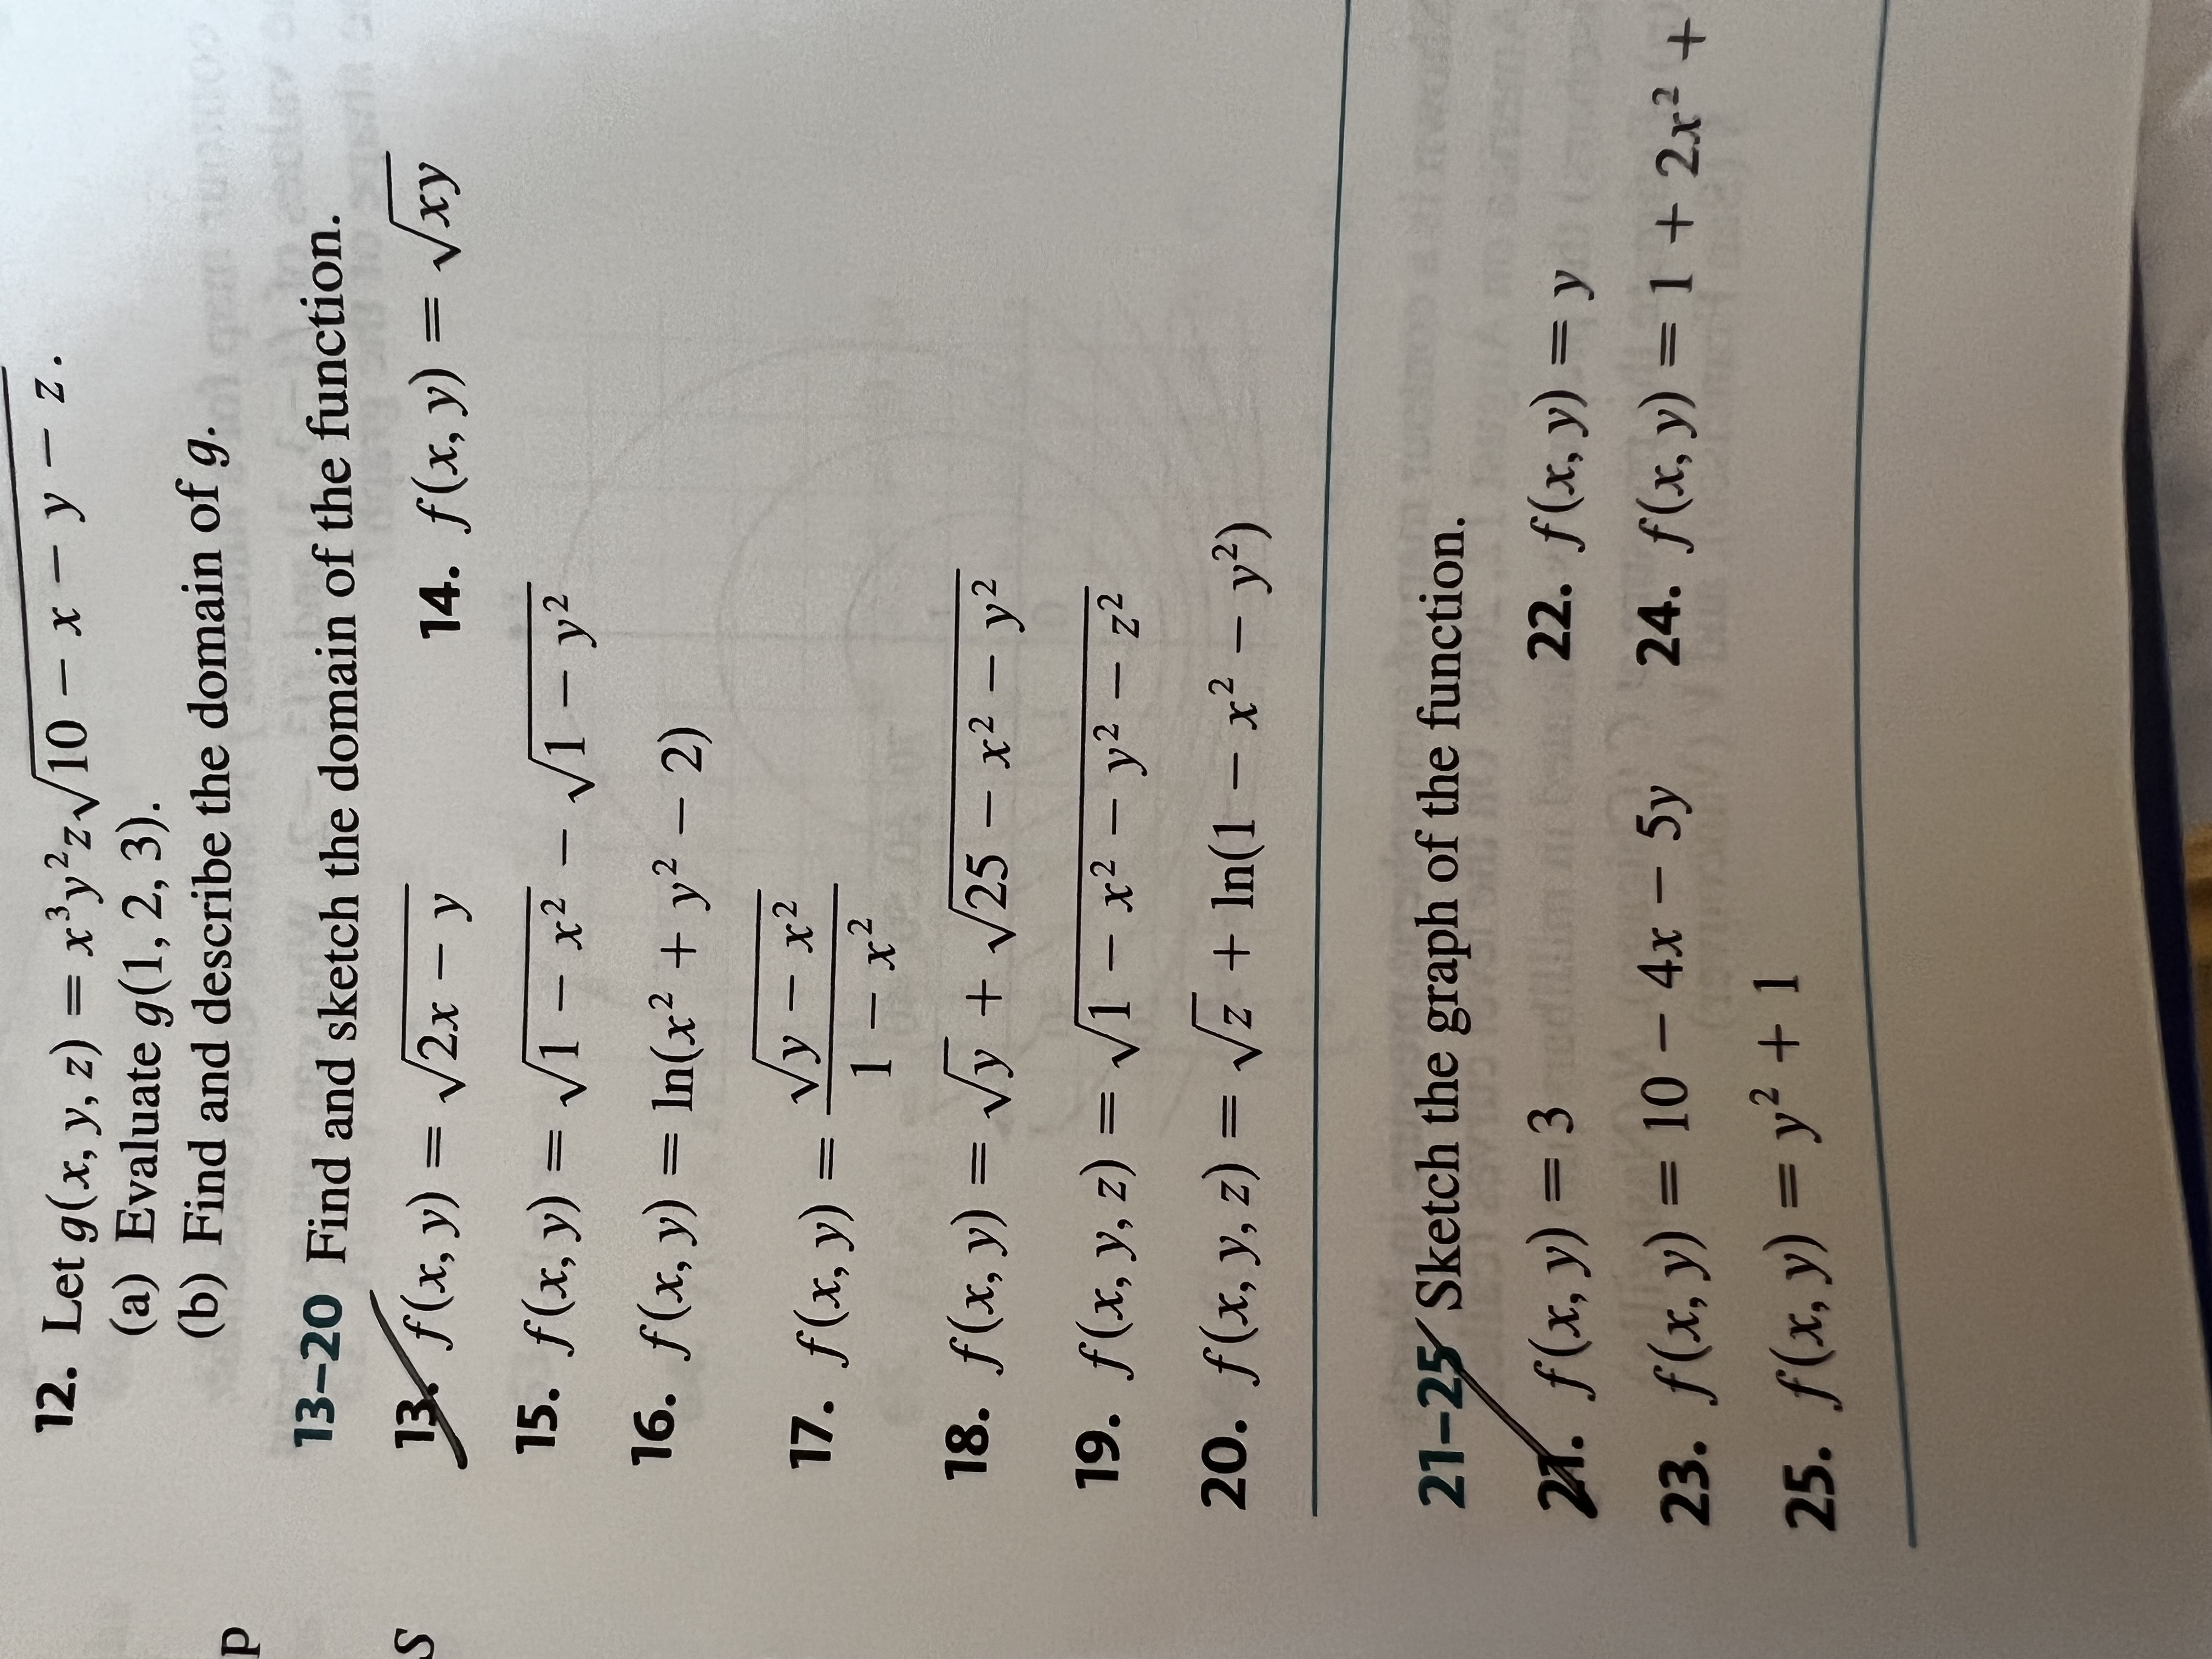 12. Let g(x, y, z) = x³y²z√(10 − x − y − z).
(a) Evaluate g(1, 2, 3).
(b) Find and describe the domain of g.
p
13–20 Find and sketch the domain of the function.
s
13. f(x, y) = √(2x − y) 14. f(x, y) = √(xy)
15. f(x, y) = √(1 − x²) − √(1 − y²)
16. f(x, y) = ln(x² + y² − 2)
17. f(x, y) = √(y − x²) / (1 − x²)
18. f(x, y) = √y + √(25 − x² − y²)
19. f(x, y, z) = √(1 − x² − y² − z²)
20. f(x, y, z) = √z + ln(1 − x² − y²)
21–25 Sketch the graph of the function.
21. f(x, y) = 3 22. f(x, y) = y
23. f(x, y) = 10 − 4x − 5y 24. f(x, y) = 1 + 2x² +
25. f(x, y) = y² + 1